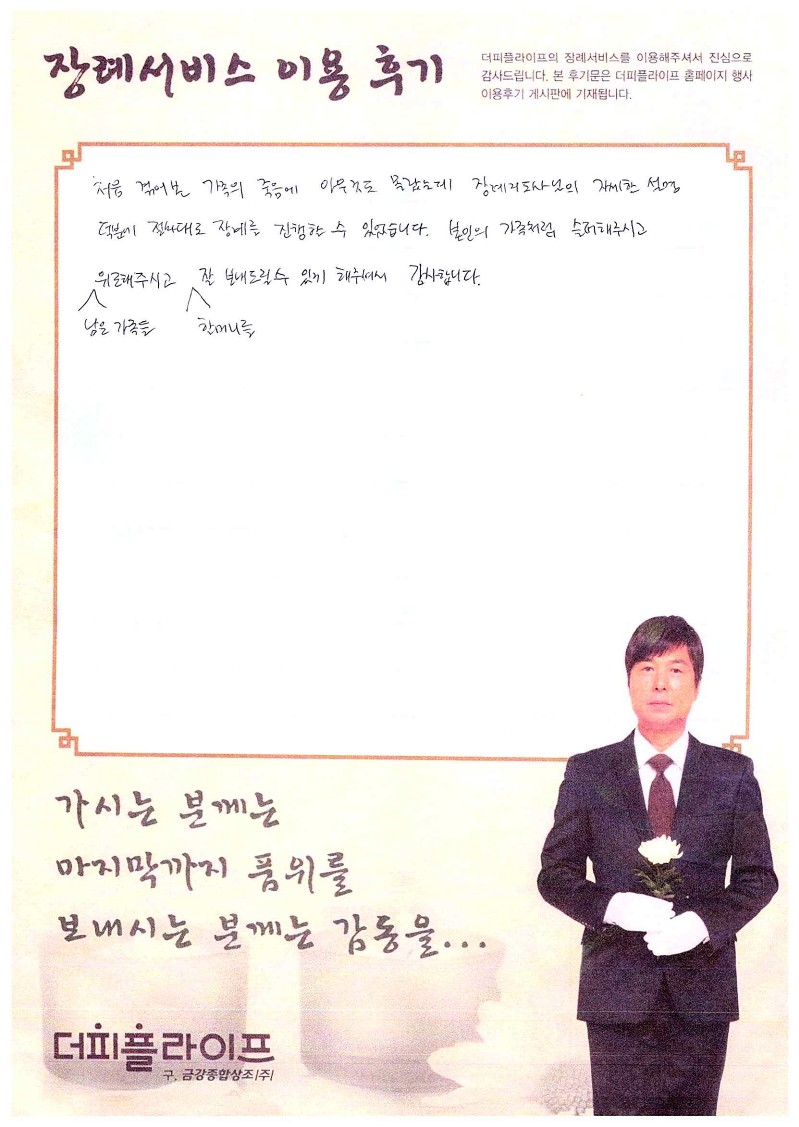 장례서비스 이용 후기
더피플라이프의 장례서비스를 이용해주셔서 진심으로
감사드립니다. 본 후기문은 더피플라이프 홈페이지 행사
이용후기 게시판에 기재됩니다.
처음 겪어본 가족의 죽음에 아무것도 몰랐는데 장례지도사님의 자세한 설명
덕분에 절차대로 장례를 진행할 수 있었습니다. 본인의 가족처럼 슬퍼해주시고
위로해주시고 잘 보내드릴수 있게 해주셔서 감사합니다.
남은 가족들 할머니를
가시는 분께는
마지막까지 품위를
보내시는 분께는 감동을...
더피플라이프
구. 금강종합상조(주)